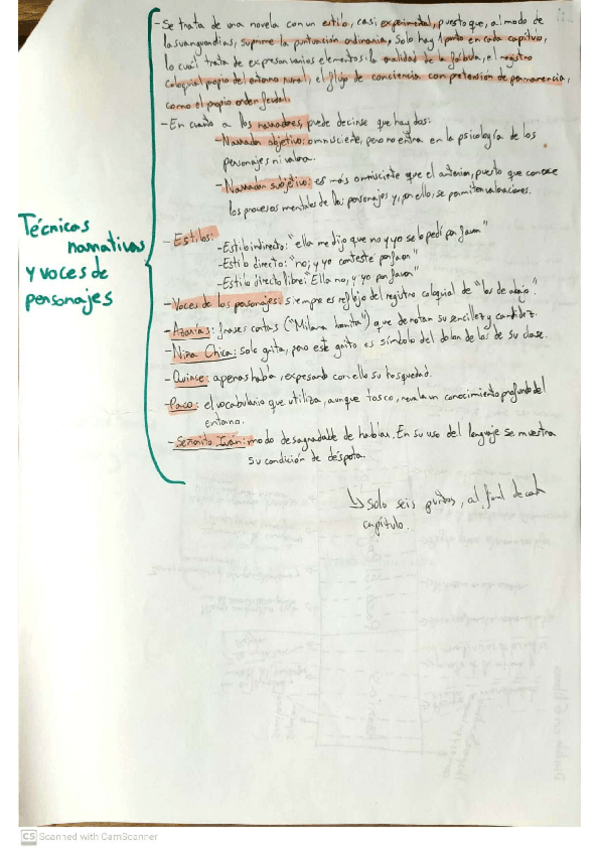 Técnicas
narrativas
y voces de
personajes
- Se trata de una novela con un estilo, casi experimental, puesto que, al modo de
las vanguardias, suprime la puntuación ordinaria. Solo hay 1 punto en cada capítulo,
lo cuál trata de expresar varios elementos: la oralidad de la fábula, el registro
coloquial propio del entorno rural, el flujo de conciencia con pretensión de permanencia,
como el propio orden feudal.
- En cuanto a los narradores, puede decirse que hay dos:
- Narrador objetivo: omnisciente, pero no entra en la psicología de los
personajes ni valora.
- Narrador subjetivo: es más omnisciente que el anterior, puesto que conoce
los procesos mentales de los personajes y, por ello, se permiten valoraciones.
- Estilos:
- Estilo indirecto: "ella me dijo que no y yo se lo pedí por favor"
- Estilo directo: "no; y yo contesté por favor"
- Estilo directo libre: "Ella no, y yo por favor"
- Voces de los personajes: siempre es reflejo del registro coloquial de "los de abajo".
- Azarías: frases cortas ("Milana bonita") que denotan su sencillez y candidez.
- Niña Chica: solo grita, pero este grito es símbolo del dolor de los de su clase.
- Quirce: apenas habla, expresando con ello su hosquedad.
- Paco: el vocabulario que utiliza, aunque tosco, revela un conocimiento profundo del
entorno.
- Señorito Iván: modo desagradable de hablar. En su uso del lenguaje se muestra
su condición de déspota.
↳ solo seis puntos, al final de cada
capítulo.
CS Scanned with CamScanner